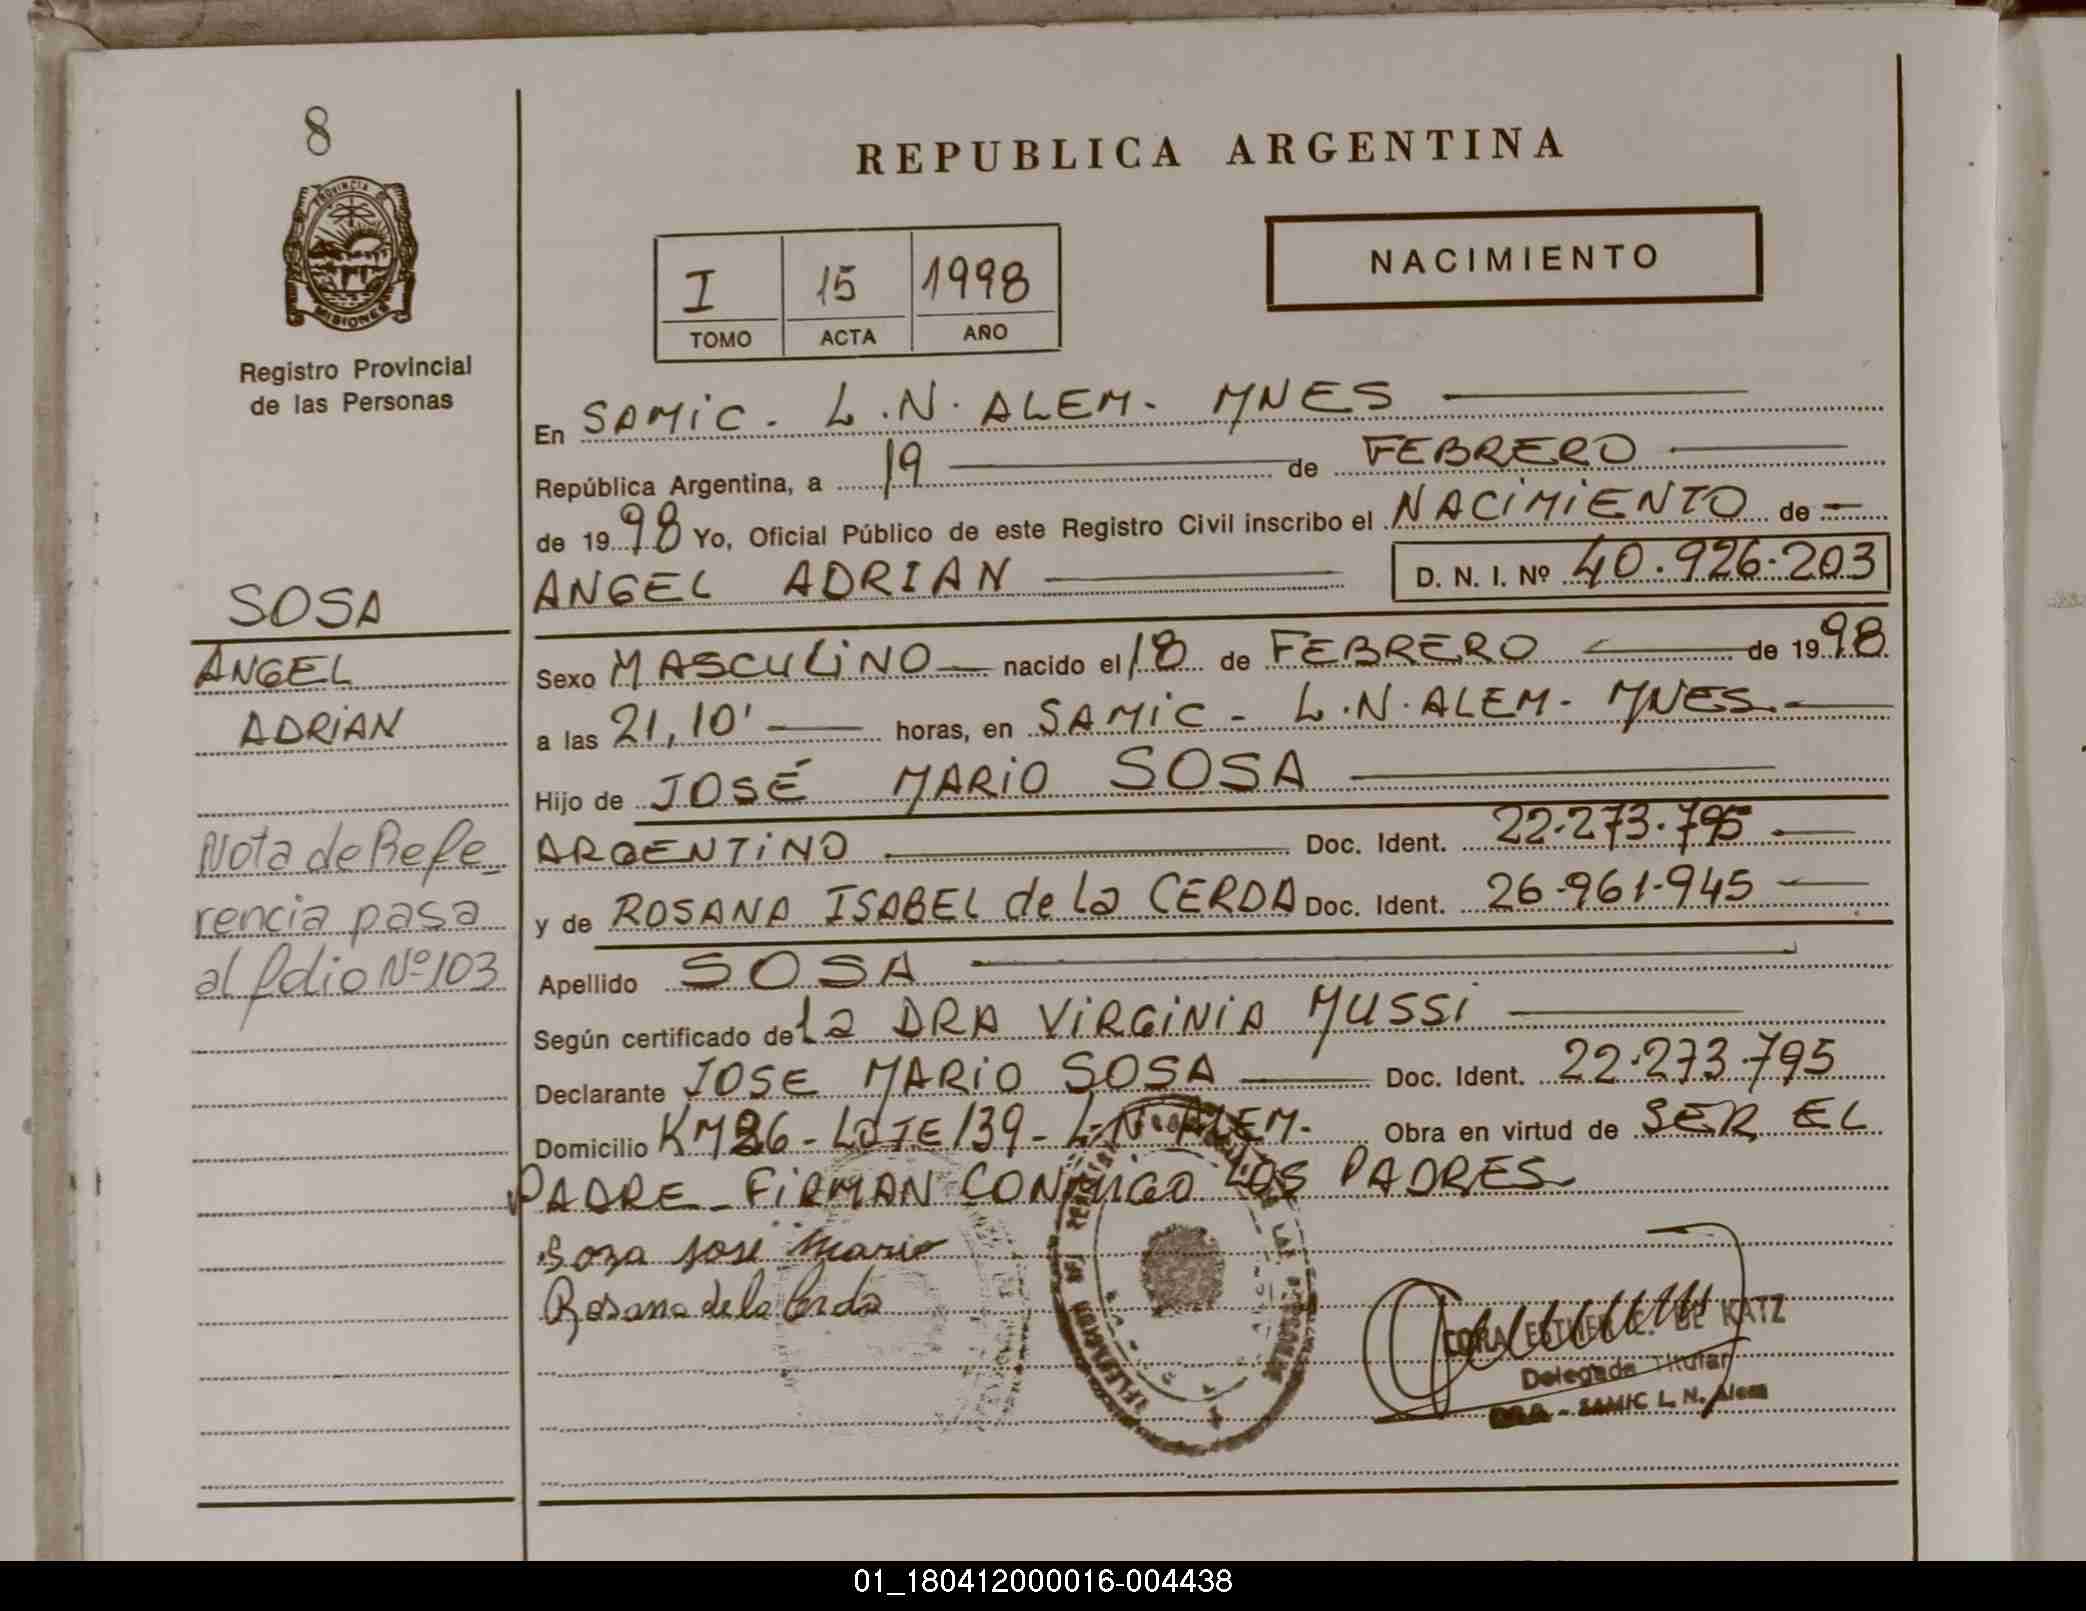 8
REPUBLICA ARGENTINA
PROVINCIA DE
MISIONES
Registro Provincial
de las Personas
I 15 1998
TOMO ACTA AÑO
NACIMIENTO
En SAMIC. L.N. ALEM. MNES
República Argentina, a 19 de FEBRERO
de 1998 Yo, Oficial Público de este Registro Civil inscribo el NACIMIENTO de
ANGEL ADRIAN D. N. I. Nº 40.926.203
SOSA
ANGEL
ADRIAN
Sexo MASCULINO nacido el 18 de FEBRERO de 1998
a las 21,10' horas, en SAMIC - L.N. ALEM - MNES
Hijo de JOSÉ MARIO SOSA
ARGENTINO Doc. Ident. 22.273.795
y de ROSANA ISABEL de la CERDA Doc. Ident. 26.961.945
Nota de Refe_
rencia pasa
al folio Nº 103
Apellido SOSA
Según certificado de la DRA VIRGINIA MUSSI
Declarante JOSE MARIO SOSA Doc. Ident. 22.273.795
Domicilio KM 26 - LOTE 139 - L.N. ALEM. Obra en virtud de SER EL
PADRE - FIRMAN CONMIGO LOS PADRES
Soza José Mario
Rosana de la Cerda
CORA ESTHER E. DE KATZ
Delegada Titular
SAMIC L. N. Alem
01_180412000016-004438